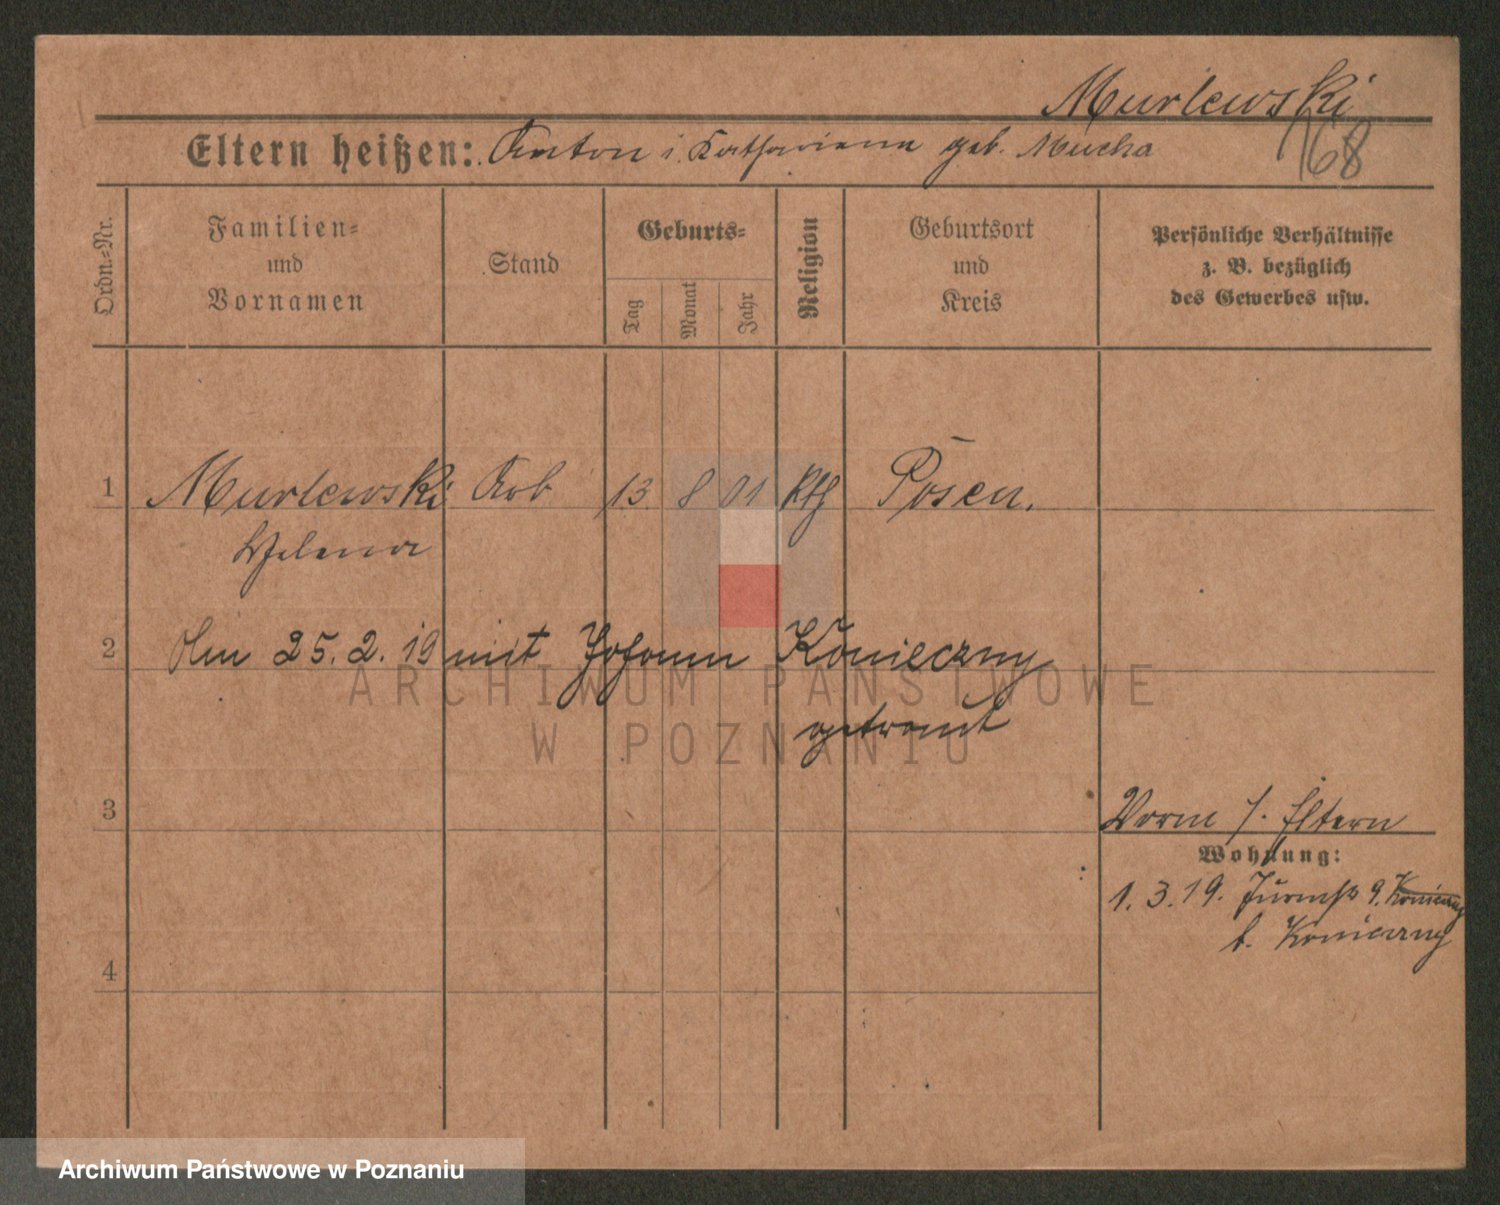 Murlewski
168
Eltern heißen: Anton i. Kathariena geb. Mucha
Ordn.-Nr.
Familien-
und
Vornamen
Stand
Geburts-
Tag
Monat
Jahr
Religion
Geburtsort
und
Kreis
Persönliche Verhältnisse
z. B. bezüglich
des Gewerbes usw.
1 Murlewski Arb 13 8 01 Kth Posen.
Helena
2 Am 25. 2. 19 mit Johann Konieczny
getraut
ARCHIWUM PAŃSTWOWE
W POZNANIU
3
Vorm s. Eltern
Wohnung:
1. 3. 19. 9. Konieczny
b. Konieczny
4
Archiwum Państwowe w Poznaniu